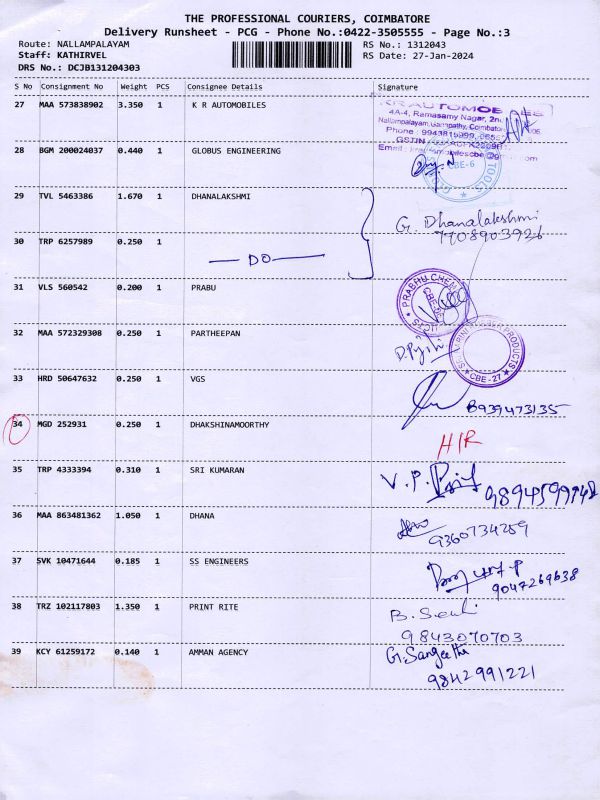 THE PROFESSIONAL COURIERS, COIMBATORE
Delivery Runsheet - PCG - Phone No.:0422-3505555 - Page No.:3
Route: NALLAMPALAYAM RS No.: 1312043
Staff: KATHIRVEL RS Date: 27-Jan-2024
DRS No.: DCJB131204303
S No Consignment No Weight PCS Consignee Details Signature
27 MAA 573838902 3.350 1 K R AUTOMOBILES
KR AUTOMOBILES
4A-4, Ramasamy Nagar, 2nd
Nallampalayam, Ganapathy, Coimbatore
Phone : 9943815999
GSTIN
Email
28 BGM 200024037 0.440 1 GLOBUS ENGINEERING
TOOLS
CBE-6
29 TVL 5463386 1.670 1 DHANALAKSHMI
G. Dhanalakshmi
7708903926
30 TRP 6257989 0.250 1 DO
31 VLS 560542 0.200 1 PRABU
PRABHU CHEM
32 MAA 572329308 0.250 1 PARTHEEPAN
PRODUCTS
CBE-27
33 HRD 50647632 0.250 1 VGS
8939473135
34 MGD 252931 0.250 1 DHAKSHINAMOORTHY
H/R
35 TRP 4333394 0.310 1 SRI KUMARAN
V. P.
36 MAA 863481362 1.050 1 DHANA
9360734259
37 SVK 10471644 0.185 1 SS ENGINEERS
9047269638
38 TRZ 102117803 1.350 1 PRINT RITE
9843070703
39 KCY 61259172 0.140 1 AMMAN AGENCY
G. Sangeetha
9842991221